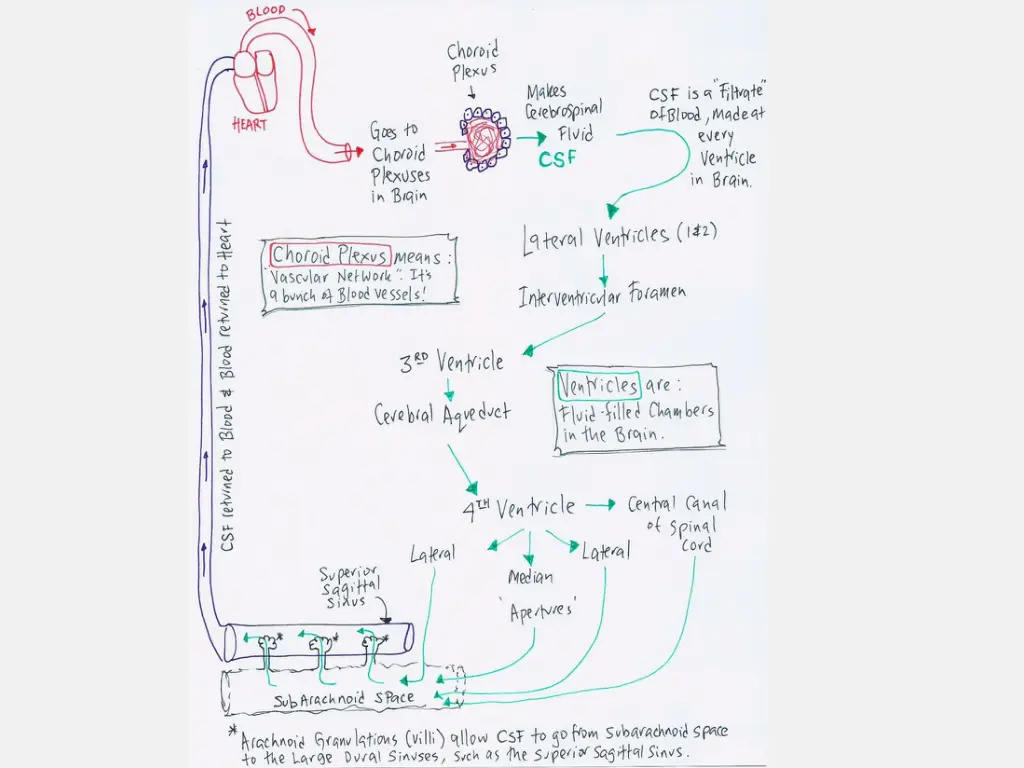 BLOOD
HEART
Goes to
Choroid
Plexuses
in Brain
Choroid
Plexus
Makes
Cerebrospinal
Fluid
CSF
CSF is a "Filtrate"
of Blood, Made at
every
Ventricle
in Brain.
Lateral Ventricles (1&2)
Interventricular Foramen
3RD Ventricle
Cerebral Aqueduct
4TH Ventricle
Central Canal
of Spinal
Cord
Lateral
Median
Lateral
'Apertures'
Choroid Plexus means:
"Vascular Network". It's
a bunch of Blood vessels!
Ventricles are:
Fluid-filled Chambers
in the Brain.
CSF returned to Blood & Blood returned to Heart
Superior
Sagittal
Sinus
* * *
SubArachnoid Space
* Arachnoid Granulations (Villi) allow CSF to go from Subarachnoid space
to the Large Dural Sinuses, such as the Superior Sagittal Sinus.